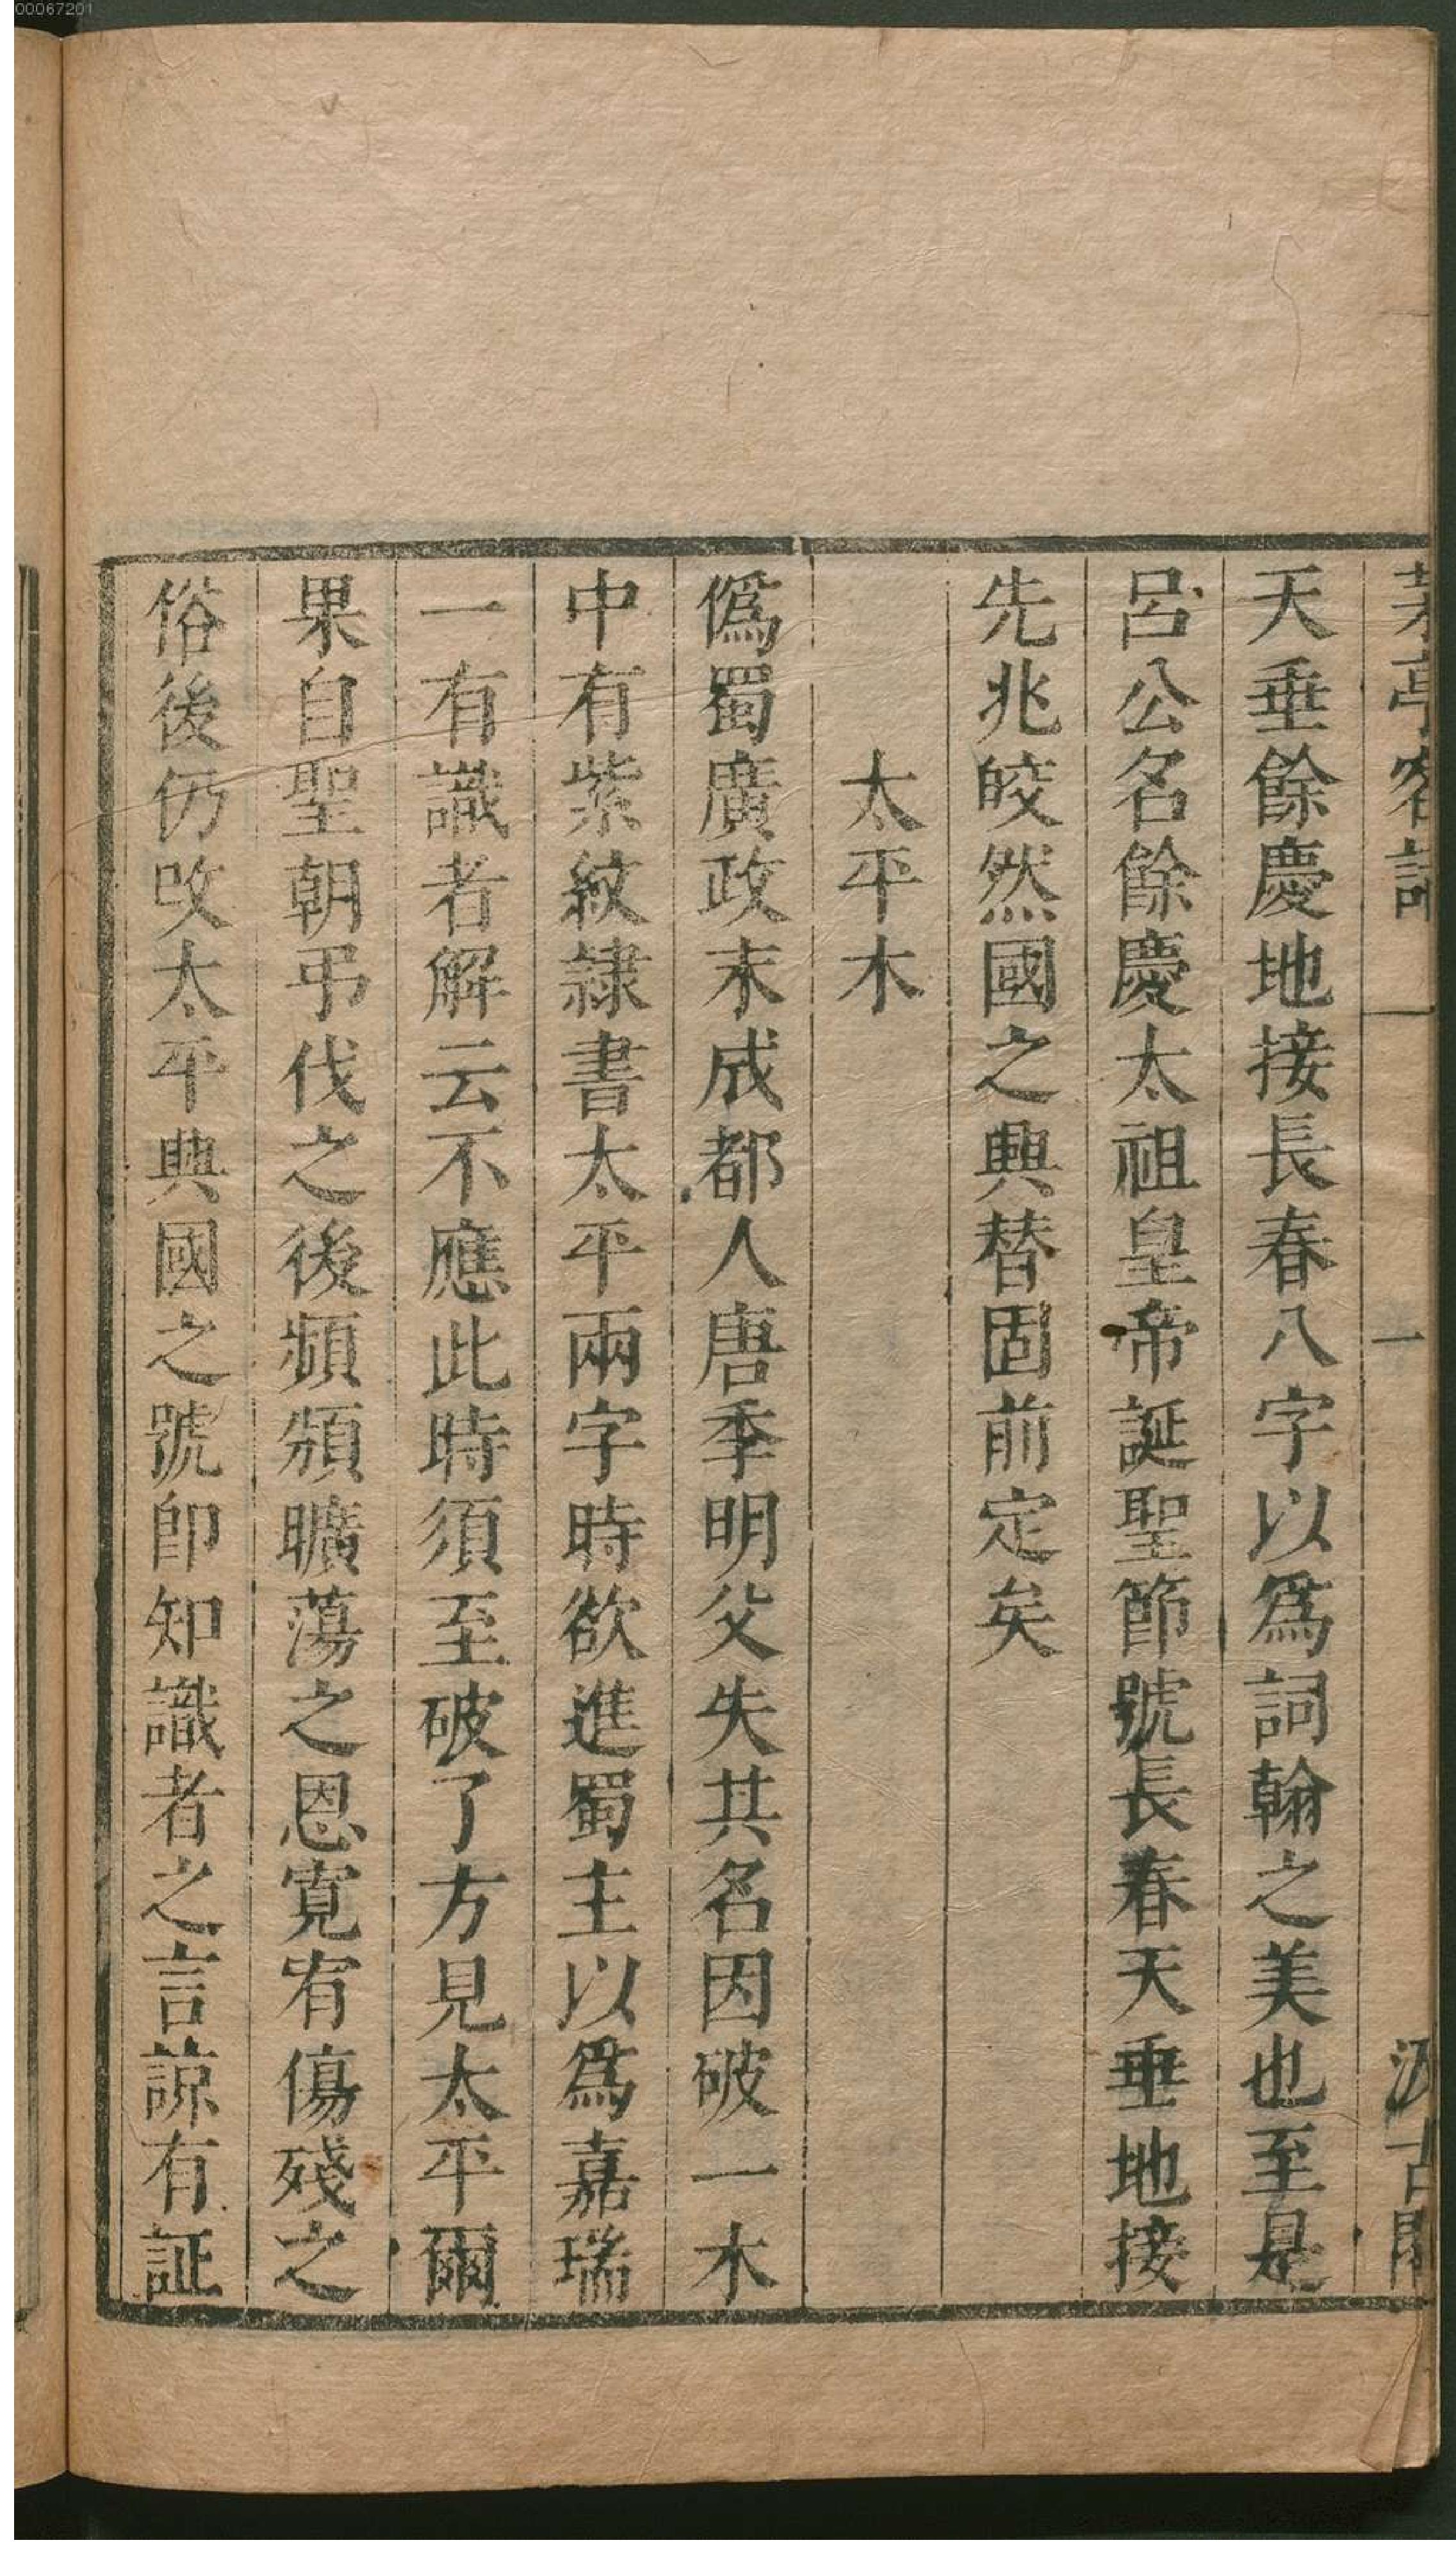 00067201
茅亭客話
一
一
汲古閣
天垂餘慶地接長春八字以爲詞翰之美也至是
呂公名餘慶太祖皇帝誕聖節號長春天垂地接
先兆皎然國之興替固前定矣
太平木
僞蜀廣政末成都人唐季明父失其名因破一木
中有紫紋隸書太平兩字時欲進蜀主以爲嘉瑞
一有識者解云不應此時須至破了方見太平爾
果自聖朝弔伐之後頻頒曠蕩之恩寬宥傷殘之
俗後仍攺太平興國之號卽知識者之言諒有証